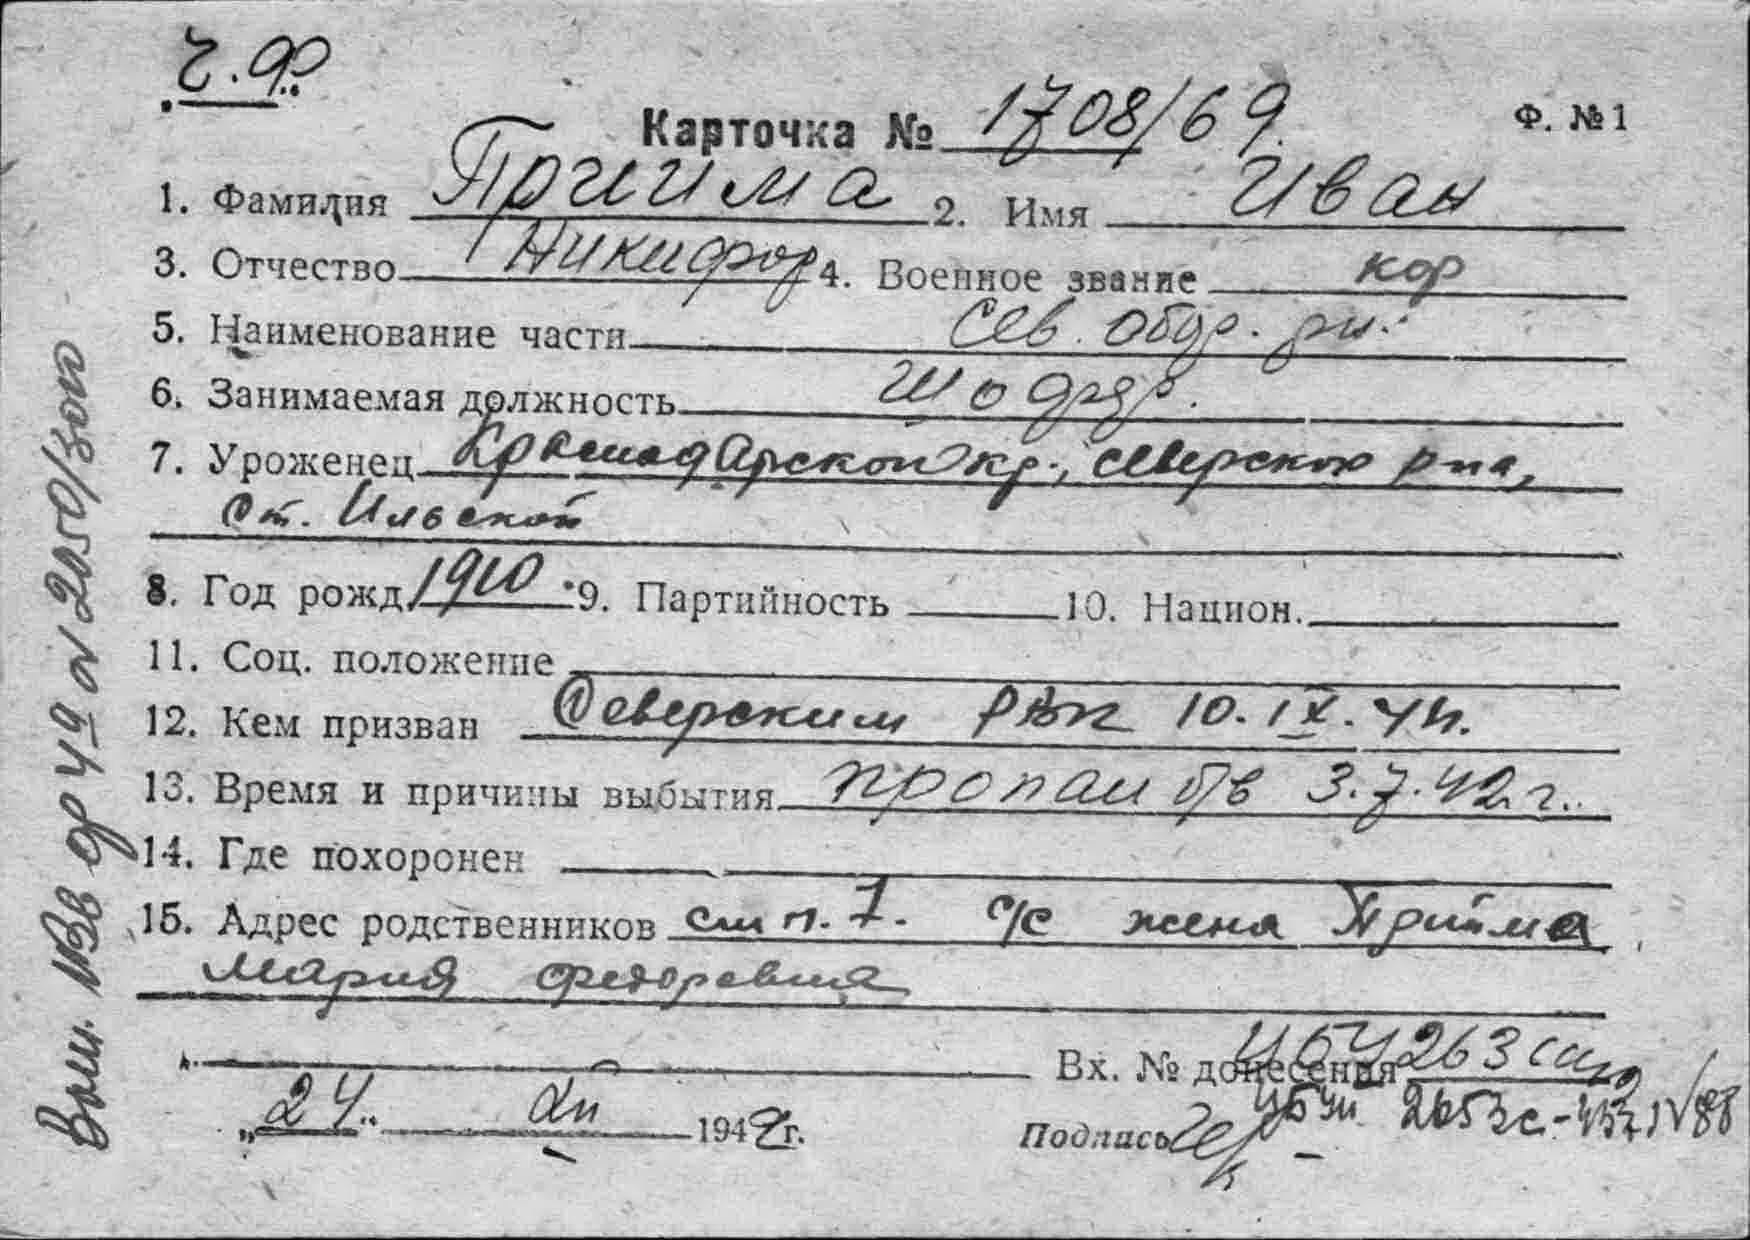 Ч.Ф.
Карточка № 1708/69 Ф. № 1
1. Фамилия Приима 2. Имя Иван
3. Отчество Никифор 4. Военное звание кр
5. Наименование части Сев. обор. рн.
6. Занимаемая должность
7. Уроженец Краснодарской кр., Северского рна,
Ст. Ильской
8. Год рожд. 1910 9. Партийность 10. Национ.
11. Соц. положение
12. Кем призван Северским РВК 10.IX.41г.
13. Время и причины выбытия пропал б/в 3.7.42.г.
14. Где похоронен
15. Адрес родственников см п. 7. с/с жена Прийма
Мария Федоровна
Вх. № донесения
„24" 194 г.
Подпись